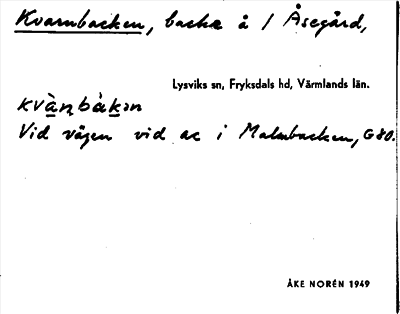 Kvarnbacken, backe å 1 Åsegård,
Lysviks sn, Fryksdals hd, Värmlands län.
kvàn̥bàkən
Vid vägen vid ac i Malmbacken, G80.
ÅKE NORÉN 1949